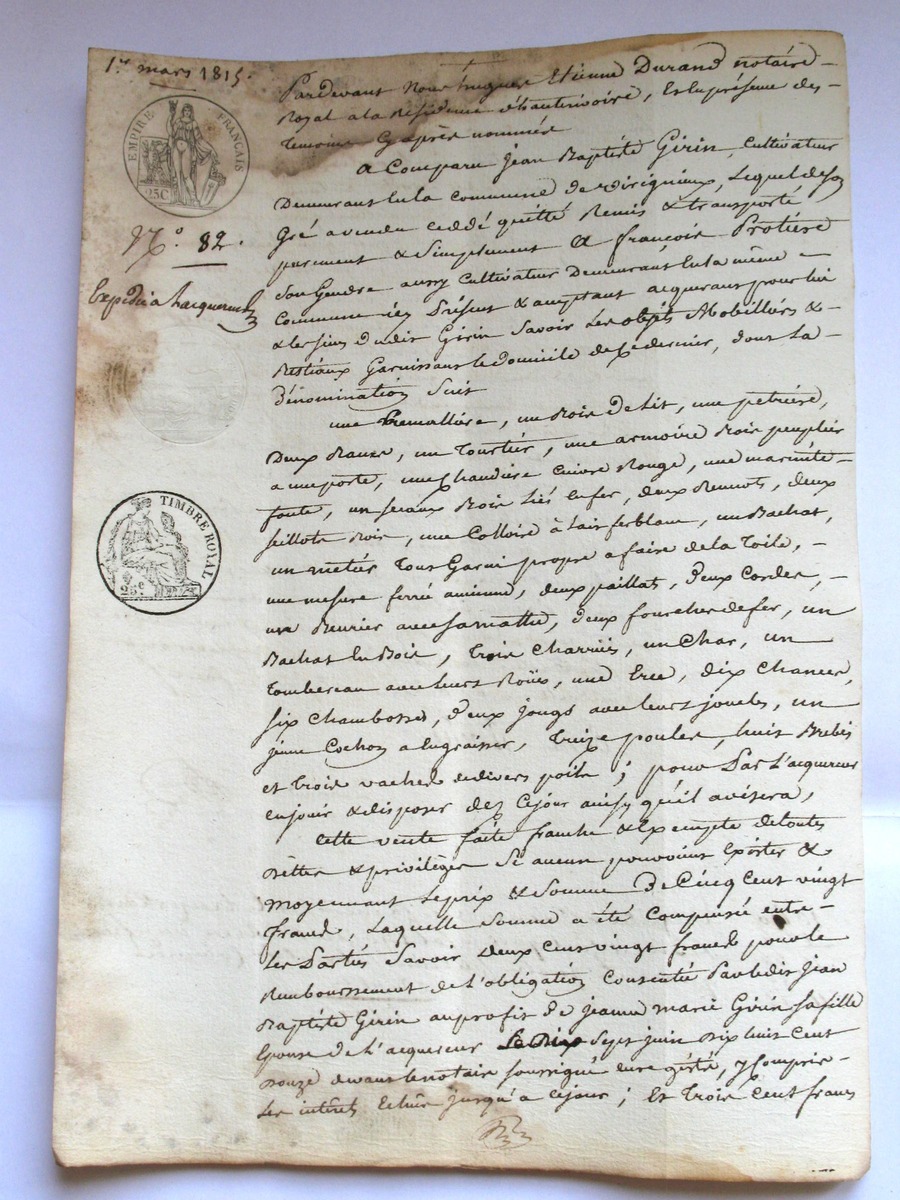 1.er mars 1815.
EMPIRE FRANÇAIS
25C
N.o 82.
Expédié a l'acquereur
TIMBRE ROYAL
25c
Pardevant Nous hugues Etienne Durand notaire
Royal a la Residence d'hauterivoire, Et En présence des
Temoins Cy après nommés
a Comparu Jean Baptiste Girin, Cultivateur
Demeurant En la commune de virigneux, Lequel de son
Gré a vendu ceddé quitté Remis & transporté
purement & Simplement a françois Protière
Son Gendre aussy Cultivateur Demeurant En la même
Commune icy Présent & acceptant acquerant pour lui
& les siens dudit Girin Savoir Les objets Mobilliers &
Bestiaux Garnissant le domicile de Ce dernier, dont La
Dénomination Suit
une Cremallière, un Bois de Lit, une petrière,
Deux Bancs, un Tourtier, une armoire Bois peuplier
a une porte, une Chaudière Cuivre Rouge, une marmite
fonte, un seaux Bois Liés En fer, deux Bennots, deux
seillots Bois, une Colloire à Lait ferblanc, un Bachat,
un métier Tout Garni propre a faire de la Toile,
une mesure ferré ancienne, deux paillat, deux Cordes,
un Beurier avec sa matte, deux fourches de fer, un
Bachat En Bois, Trois Charriés, un Char, un
Tombereau avec Leurs Roües, une Erée, dix Chances,
six Chambosses, deux Jougs avec leurs joucles, un
jeune Cochon a Engraisser, Treize poules, huit Brebis
et Trois vaches de divers poils; pour Par L'acquereur
En jouir & disposer dez Ce jour ainsy qu'il avisera,
Cette vente faite franche & Exempte de toutes
Dettes & privilèges Si aucun pouvoint Exister &
moyennant Le prix & Somme De Cinq Cent vingt
francs, Laquelle Somme a été Compensée entre
Les Parties Savoir Deux Cent vingt francs pour le
Remboursement de L'obligation Consentie Par ledit Jean
Baptiste Girin au profit de Jeanne marie Girin sa fille
Epouse de L'acquereur Sept juin dix huit Cent
Douze devant le notaire soussigné Enregistré, y Compris
Les intérêts Echus jusqu'a Ce jour; Et Trois Cent francs